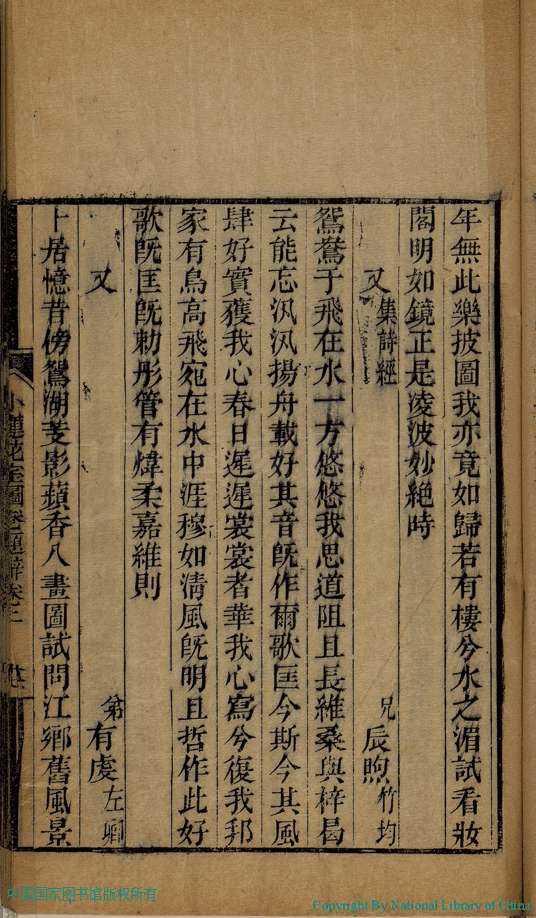 年無此樂披圖我亦竟如歸若有樓兮水之湄試看妝
閣明如鏡正是凌波妙絕時
又 集詩經 兄 辰煦 竹均
鴛鴦于飛在水一方悠悠我思道阻且長維桑與梓曷
云能忘汎汎揚舟載好其音既作爾歌匪今斯今其風
肆好實獲我心春日遲遲裳裳者華我心寫兮復我邦
家有鳥高飛宛在水中涯穆如清風既明且哲作此好
歌既匡既勅彤管有煒柔嘉維則
又 弟 有虔 左卿
卜居憶昔傍鴛湖菱影蘋香入畫圖試問江鄉舊風景
小蓮花室圖卷題辭 卷三
中国国家图书馆版权所有
Copyright By National Library of China